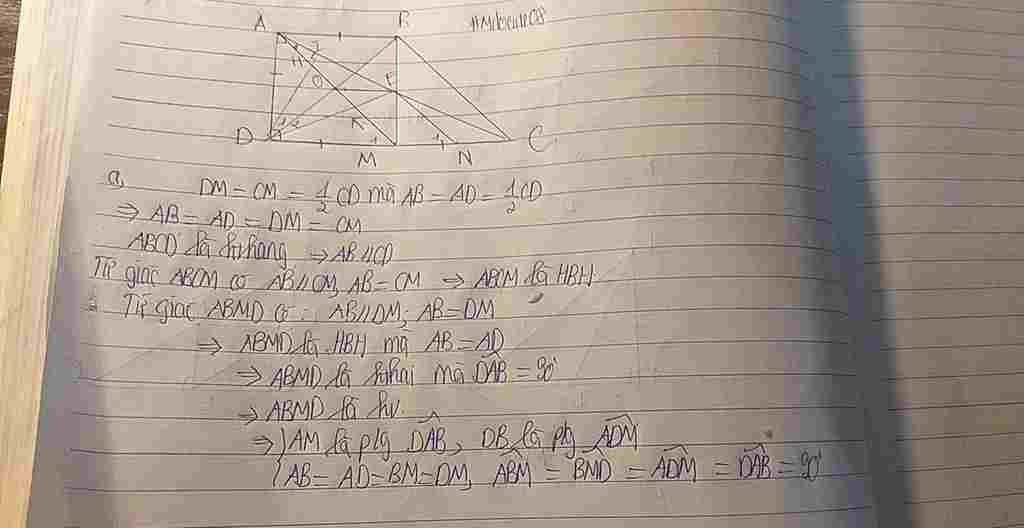 A B
H
O
E
K
D M N C
a, DM = CM = 1/2 CD mà AB = AD = 1/2 CD
⇒ AB = AD = DM = CM
ABCD là hthang ⇒ AB // CD
Tứ giác ABCM có AB // CM, AB = CM ⇒ ABCM là HBH
Tứ giác ABMD có: AB // DM; AB = DM
⇒ ABMD là HBH mà AB = AD
⇒ ABMD là hthoi mà DAB = 90°
⇒ ABMD là hv.
⇒ AM là p/g DAB, DB là p/g ADM
AB = AD = BM = DM, ABM = BMD = ADM = DAB = 90°